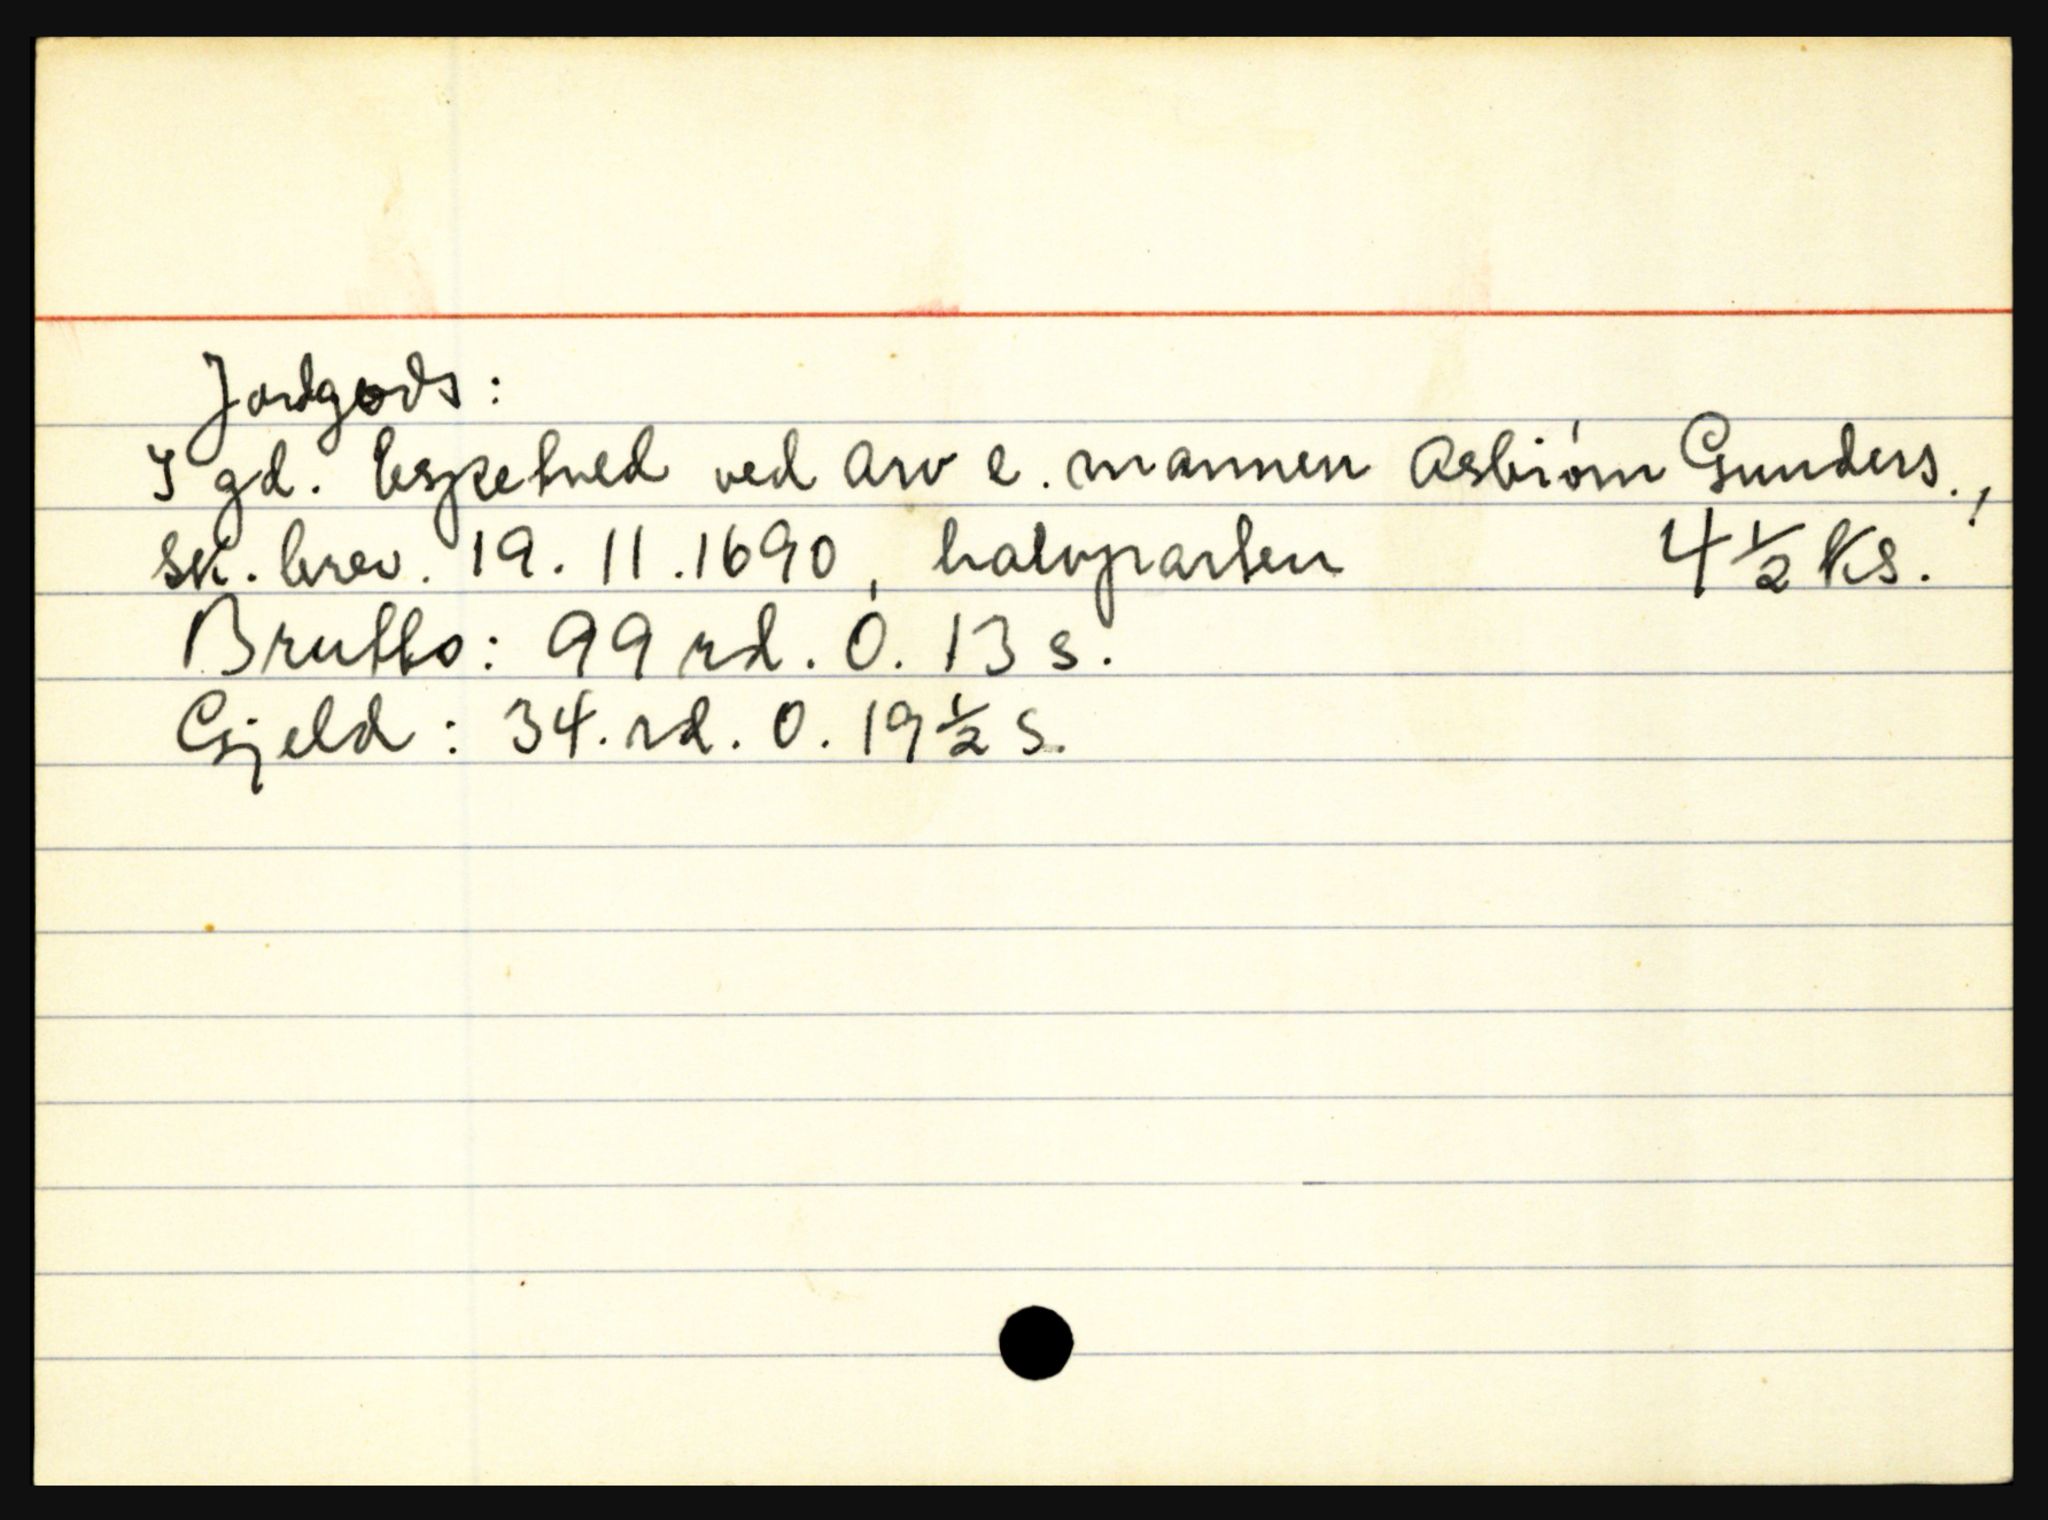 Jordgods:
I gd. Espetved ved arv e. mannen Asbiørn Gunders.,
sk. brev. 19. 11. 1690, halvparten 4 1/2 Ks.
Brutto: 99 rd. 0. 13 s.
Gjeld: 34. rd. 0. 19 1/2 s.